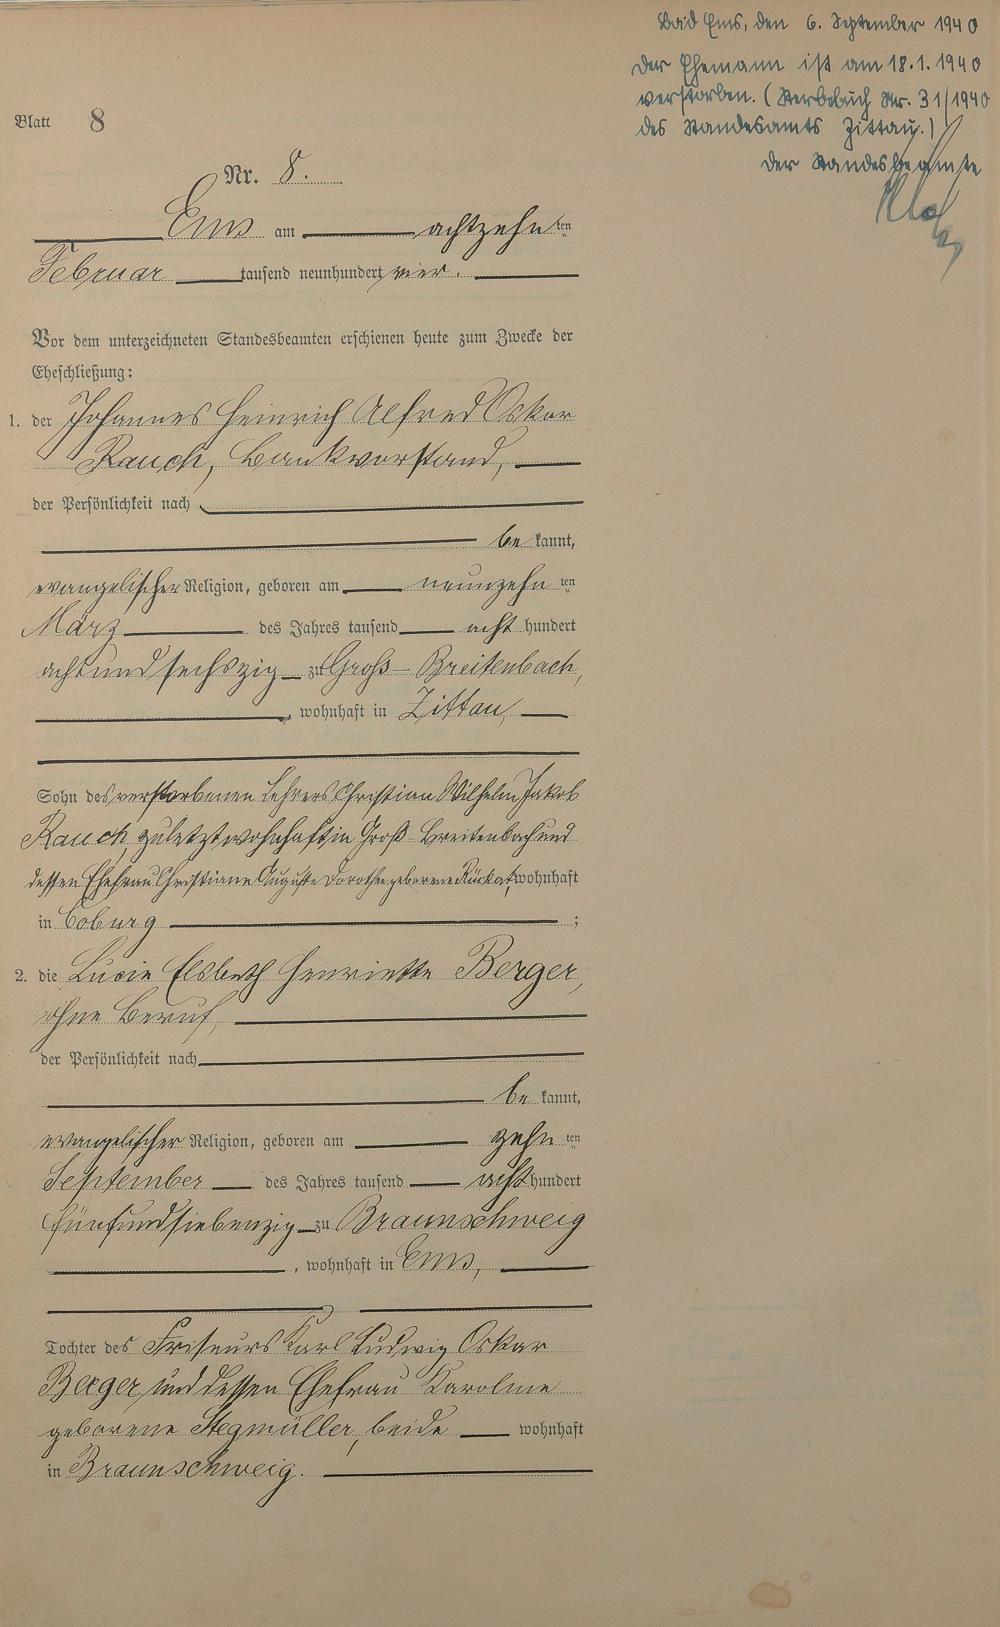 Bad Ems, den 6. September 1940
Der Ehemann ist am 18.1.1940
verstorben. (Sterbebuch Nr. 31/1940
des Standesamts Zittau.)
Der Standesbeamte
Blatt 8
Nr. 8.
Ems am achtzehnten
Februar tausend neunhundert vier.
Vor dem unterzeichneten Standesbeamten erschienen heute zum Zwecke der
Eheschließung:
1. der Johannes Heinrich Alfred Oskar
Rauch, Bankvorstand,
der Persönlichkeit nach
be kannt,
evangelischer Religion, geboren am neunzehn ten
März des Jahres tausend acht hundert
achtundsechszig zu Groß-Breitenbach,
, wohnhaft in Zittau,
Sohn des verstorbenen Lehrers Christian Wilhelm Jakob
Rauch, zuletzt wohnhaft in Groß-Breitenbach und
dessen Ehefrau Christiane Auguste Dorothea geborene wohnhaft
in Coburg ;
2. die Lucie Elsbeth Henriette Berger,
ohne Beruf,
der Persönlichkeit nach
be kannt,
evangelischer Religion, geboren am zehn ten
September des Jahres tausend acht hundert
fünfundsiebenzig zu Braunschweig
, wohnhaft in Ems,
Tochter des Friseurs Karl Ludwig Oskar
Berger und dessen Ehefrau Karoline
geborene Stegmüller, beide wohnhaft
in Braunschweig.